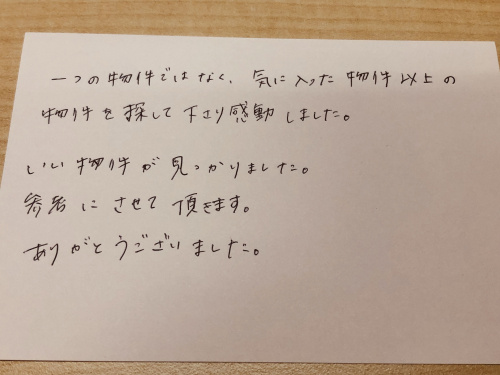 一つの物件ではなく、気に入った物件以上の
物件を探して下さり感動しました。
いい物件が見つかりました。
参考にさせて頂きます。
ありがとうございました。